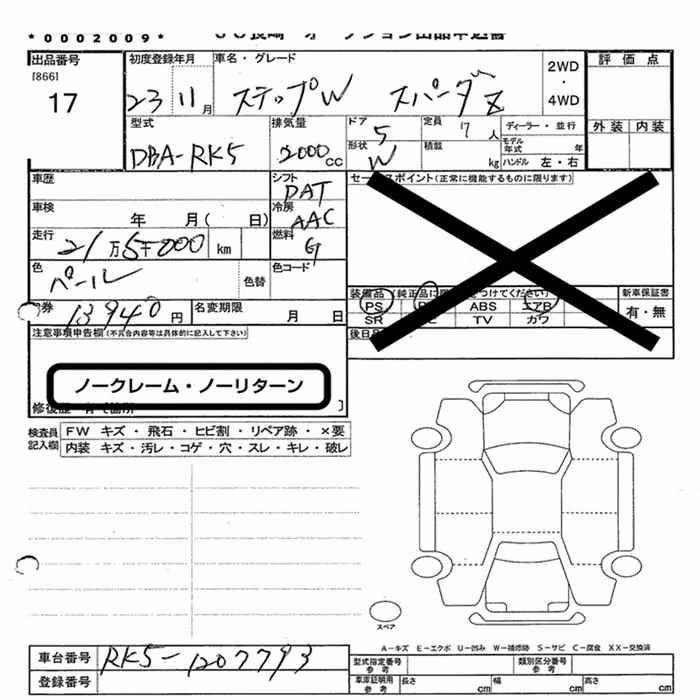 *0002009*
出品番号
[866]
17
初度登録年月
23 11月
車名・グレード
ステップW スパーダZ
2WD
・
4WD
評価点
外装 内装
型式
DBA-RK5
排気量
2000cc
ドア
5
形状
W
定員
7人
積載
kg
ディーラー・並行
モデル年式 年
ハンドル 左・右
車歴
シフト
DAT
車検
年 月( 日)
冷房
AAC
走行
21万5千000 km
燃料
G
色
パール
色替
色コード
券 13940円
名変期限
月 日
セールスポイント(正常に機能するものに限ります)
装備品
PS
ABS エアB
SR
TV カワ
新車保証書
有・無
後日
注意事項申告欄(不具合内容等は具体的に記入して下さい)
ノークレーム・ノーリターン
検査員
記入欄
FW キズ・飛石・ヒビ割・リペア跡・×要
内装 キズ・汚レ・コゲ・穴・スレ・キレ・破レ
スペア
A-キズ E-エクボ U-凹み W-補修跡 S-サビ C-腐食 XX-交換済
車台番号 RK5-1207793
登録番号
型式指定番号
参考
類別区分番号
参考
車庫証明用
参考
長さ cm
幅 cm
高さ cm